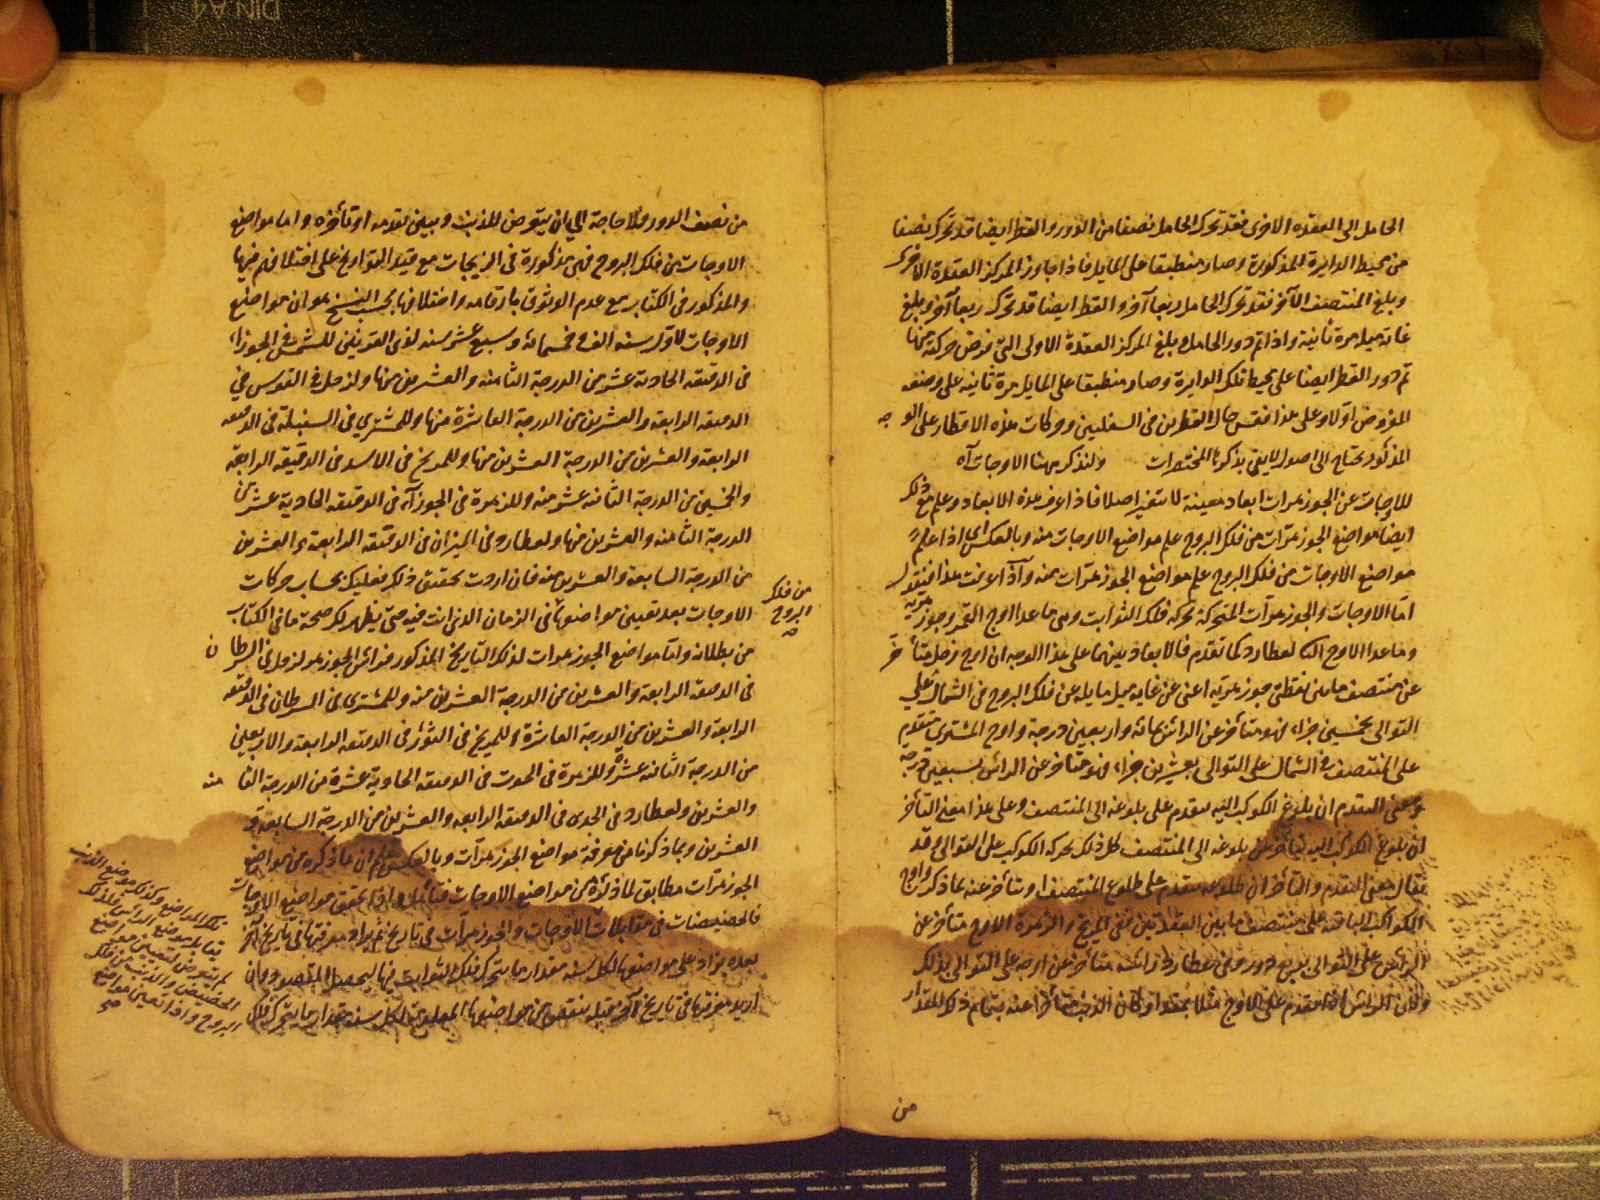 الحامل الى العقدة الاخرى فقد تحرك الحامل نصفا من الدور والقطر ايضا قد تحرك نصفا
من محيط الدايرة المذكورة وصار منطبقا على المايل فاذا جاوز المركز العقدة الاخرى
وبلغ المنتصف الآخر فقد تحرك الحامل ربعا آخر والقطر ايضا قد تحرك ربعا آخر وبلغ
غاية ميله مرة ثانية واذا تم دور الحامل وبلغ المركز العقدة الاولى التى فرض حركته منها
تم دور القطر ايضا على محيط تلك الدايرة وصار منطبقا على المايل مرة ثانية على وضعه
المفروض اولا وعلى هذا فقس حال القطرين فى السفليين وحركات هذه الاقطار على الوجه
المذكور تحتاج الى اصول لا يفى بذكرها المختصرات ولنذكر ههنا الاوجات آه
للاوجات عن الجوزهرات ابعاد معينة لا تتغير اصلا فاذا عرف هذه الابعاد وعلم مع ذلك
ايضا مواضع الجوزهرات من فلك البروج علم مواضع الاوجات منه وبالعكس اى اذا علم
مواضع الاوجات من فلك البروج علم مواضع الجوزهرات منه واذا عرفت هذا فنقول
اما الاوجات والجوزهرات المتحركة بحركة فلك الثوابت وهى ما عدا اوج القمر وجوزهريه
وما عدا الاوج لعطارد كما تقدم فالابعاد بينهما على هذا الوجه ان اوج زحل متأخر
عن منتصف ما بين نقطتى جوزهريه اعنى عن غاية ميل مايله عن فلك البروج فى الشمال على
التوالى بخمسين جزاء فهو متأخر عن الرأس بمائة واربعين درجة واوج المشترى متقدم
على المنتصف فى الشمال على التوالى بعشرين جزاء فهو متأخر عن الرأس بسبعين درجة
ومعنى التقدم ان بلوغ الكوكب اليه يتقدم على بلوغه الى المنتصف وعلى هذا معنى التأخر
ان بلوغ الكوكب اليه يتأخر عن بلوغه الى المنتصف كل ذلك بحركة الكوكب على التوالى وقد
يقال معنى التقدم والتأخر ان طلوعه يتقدم على طلوع المنتصف او يتأخر عنه بما ذكرت واوج
الكواكب الباقية على منتصف ما بين العقدتين ففى المريخ والزهرة الاوج متأخر عن
الرأس على التوالى بربع دور وفى عطارد رأسه متأخر عن اوجه على التوالى بذلك
ولان الرأس اذا تقدم على الاوج مثلا بمقدار كان الذنب متأخرا عنه بتمام ذلك المقدار
من
من نصف الدور فلا حاجة الى ان يتعرض للذنب ويبين تقدمه او تأخره واما مواضع
الاوجات من فلك البروج فهى مذكورة فى الزيجات مع قيد التواريخ على اختلافهم فيها
والمذكور فى الكتاب مع عدم الوثوق بارقامه واختلافها بحسب النسخ هو ان مواضع
الاوجات لاول سنة الف وخمسمائة وسبع عشر سنة لذى القرنين للشمس فى الجوزاء
فى الدقيقة الحادية عشر من الدرجة الثامنة والعشرين منها ولزحل فى القوس فى
الدقيقة الرابعة والعشرين من الدرجة العاشرة منها وللمشترى فى السنبلة فى الدقيقة
الرابعة والعشرين من الدرجة العشرين منها وللمريخ فى الاسد فى الدقيقة الرابعة
والخمسين من الدرجة الثانية عشر منه وللزهرة فى الجوزآء فى الدقيقة الحادية عشر من
الدرجة الثامنة والعشرين منها ولعطارد فى الميزان فى الدقيقة الرابعة والعشرين
من الدرجة السابعة والعشرين منه فان اردت تحقيق ذلك فعليك بحساب حركات
الاوجات بعد تعيين مواضعها فى الزمان الذى انت فيه حتى يظهر لك صحة ما فى الكتاب
من فلك
البروج
صح
من بطلانه واما مواضع الجوزهرات لذلك التاريخ المذكور فرأس الجوزهر لزحل فى السرطان
فى الدقيقة الرابعة والعشرين من الدرجة العشرين منه وللمشترى فى السرطان فى الدقيقة
الرابعة والعشرين من الدرجة العاشرة وللمريخ فى الثور فى الدقيقة الرابعة والاربعين
من الدرجة الثانية عشرة وللزهرة فى الحوت فى الدقيقة الحادية عشرة من الدرجة الثامنة
والعشرين ولعطارد فى الجدى فى الدقيقة الرابعة والعشرين من الدرجة السابعة و
العشرين وبما ذكرنا من معرفة مواضع الجوزهرات وبالعكس علم ان ما ذكره من مواضع
الجوزهرات مطابق لما ذكره من مواضع الاوجات فتأمل واذا تحقق مواضع الاوجات
فالحضيضات فى مقابلات الاوجات والجوزهرات فى تاريخ ثم يراد معرفتها فى تاريخ آخر
بعده يزاد على مواضعها لكل سنة مقدار ما يتحرك فلك الثوابت فيها ليحصل المقصود وان
اريد معرفتها فى تاريخ آخر قبله ينقص من مواضعها المعلومة لكل سنة مقدار ما يتحرك فلك
تلك المواضع وكذلك مواضع الذنب
يقابل موضع الرأس فلذلك
لم يتعرض لتعيين مواضع
الحضيض والذنب من فلك
البروج واذا تعين مواضع
صح